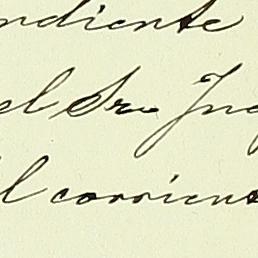 ndiente
el Sr. Ing
l corrien